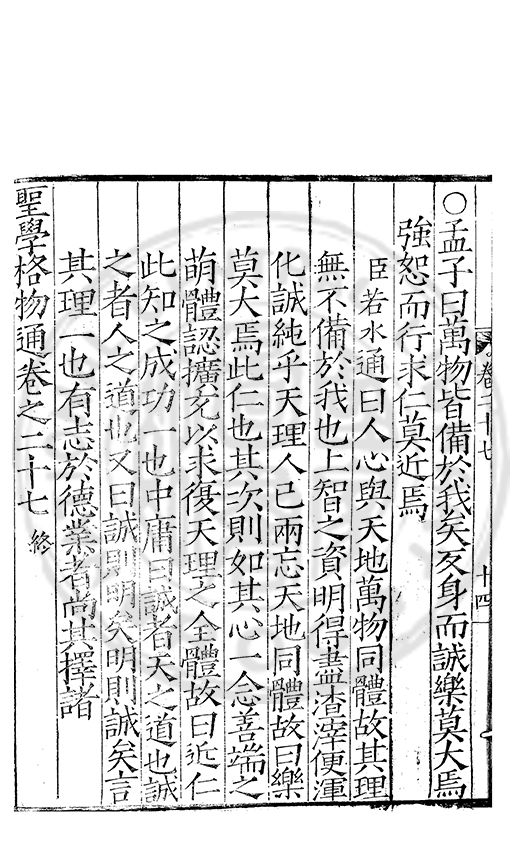 卷二十七
十四
○孟子曰萬物皆備於我矣反身而誠樂莫大焉
強恕而行求仁莫近焉
臣若水通曰人心與天地萬物同體故其理
無不備於我也上智之資明得盡渣滓便渾
化誠純乎天理人已兩忘天地同體故曰樂
莫大焉此仁也其次則如其心一念善端之
萌體認擴充以求復天理之全體故曰近仁
此知之成功一也中庸曰誠者天之道也誠
之者人之道也又曰誠則明矣明則誠矣言
其理一也有志於德業者尚其擇諸
聖學格物通卷之二十七 終